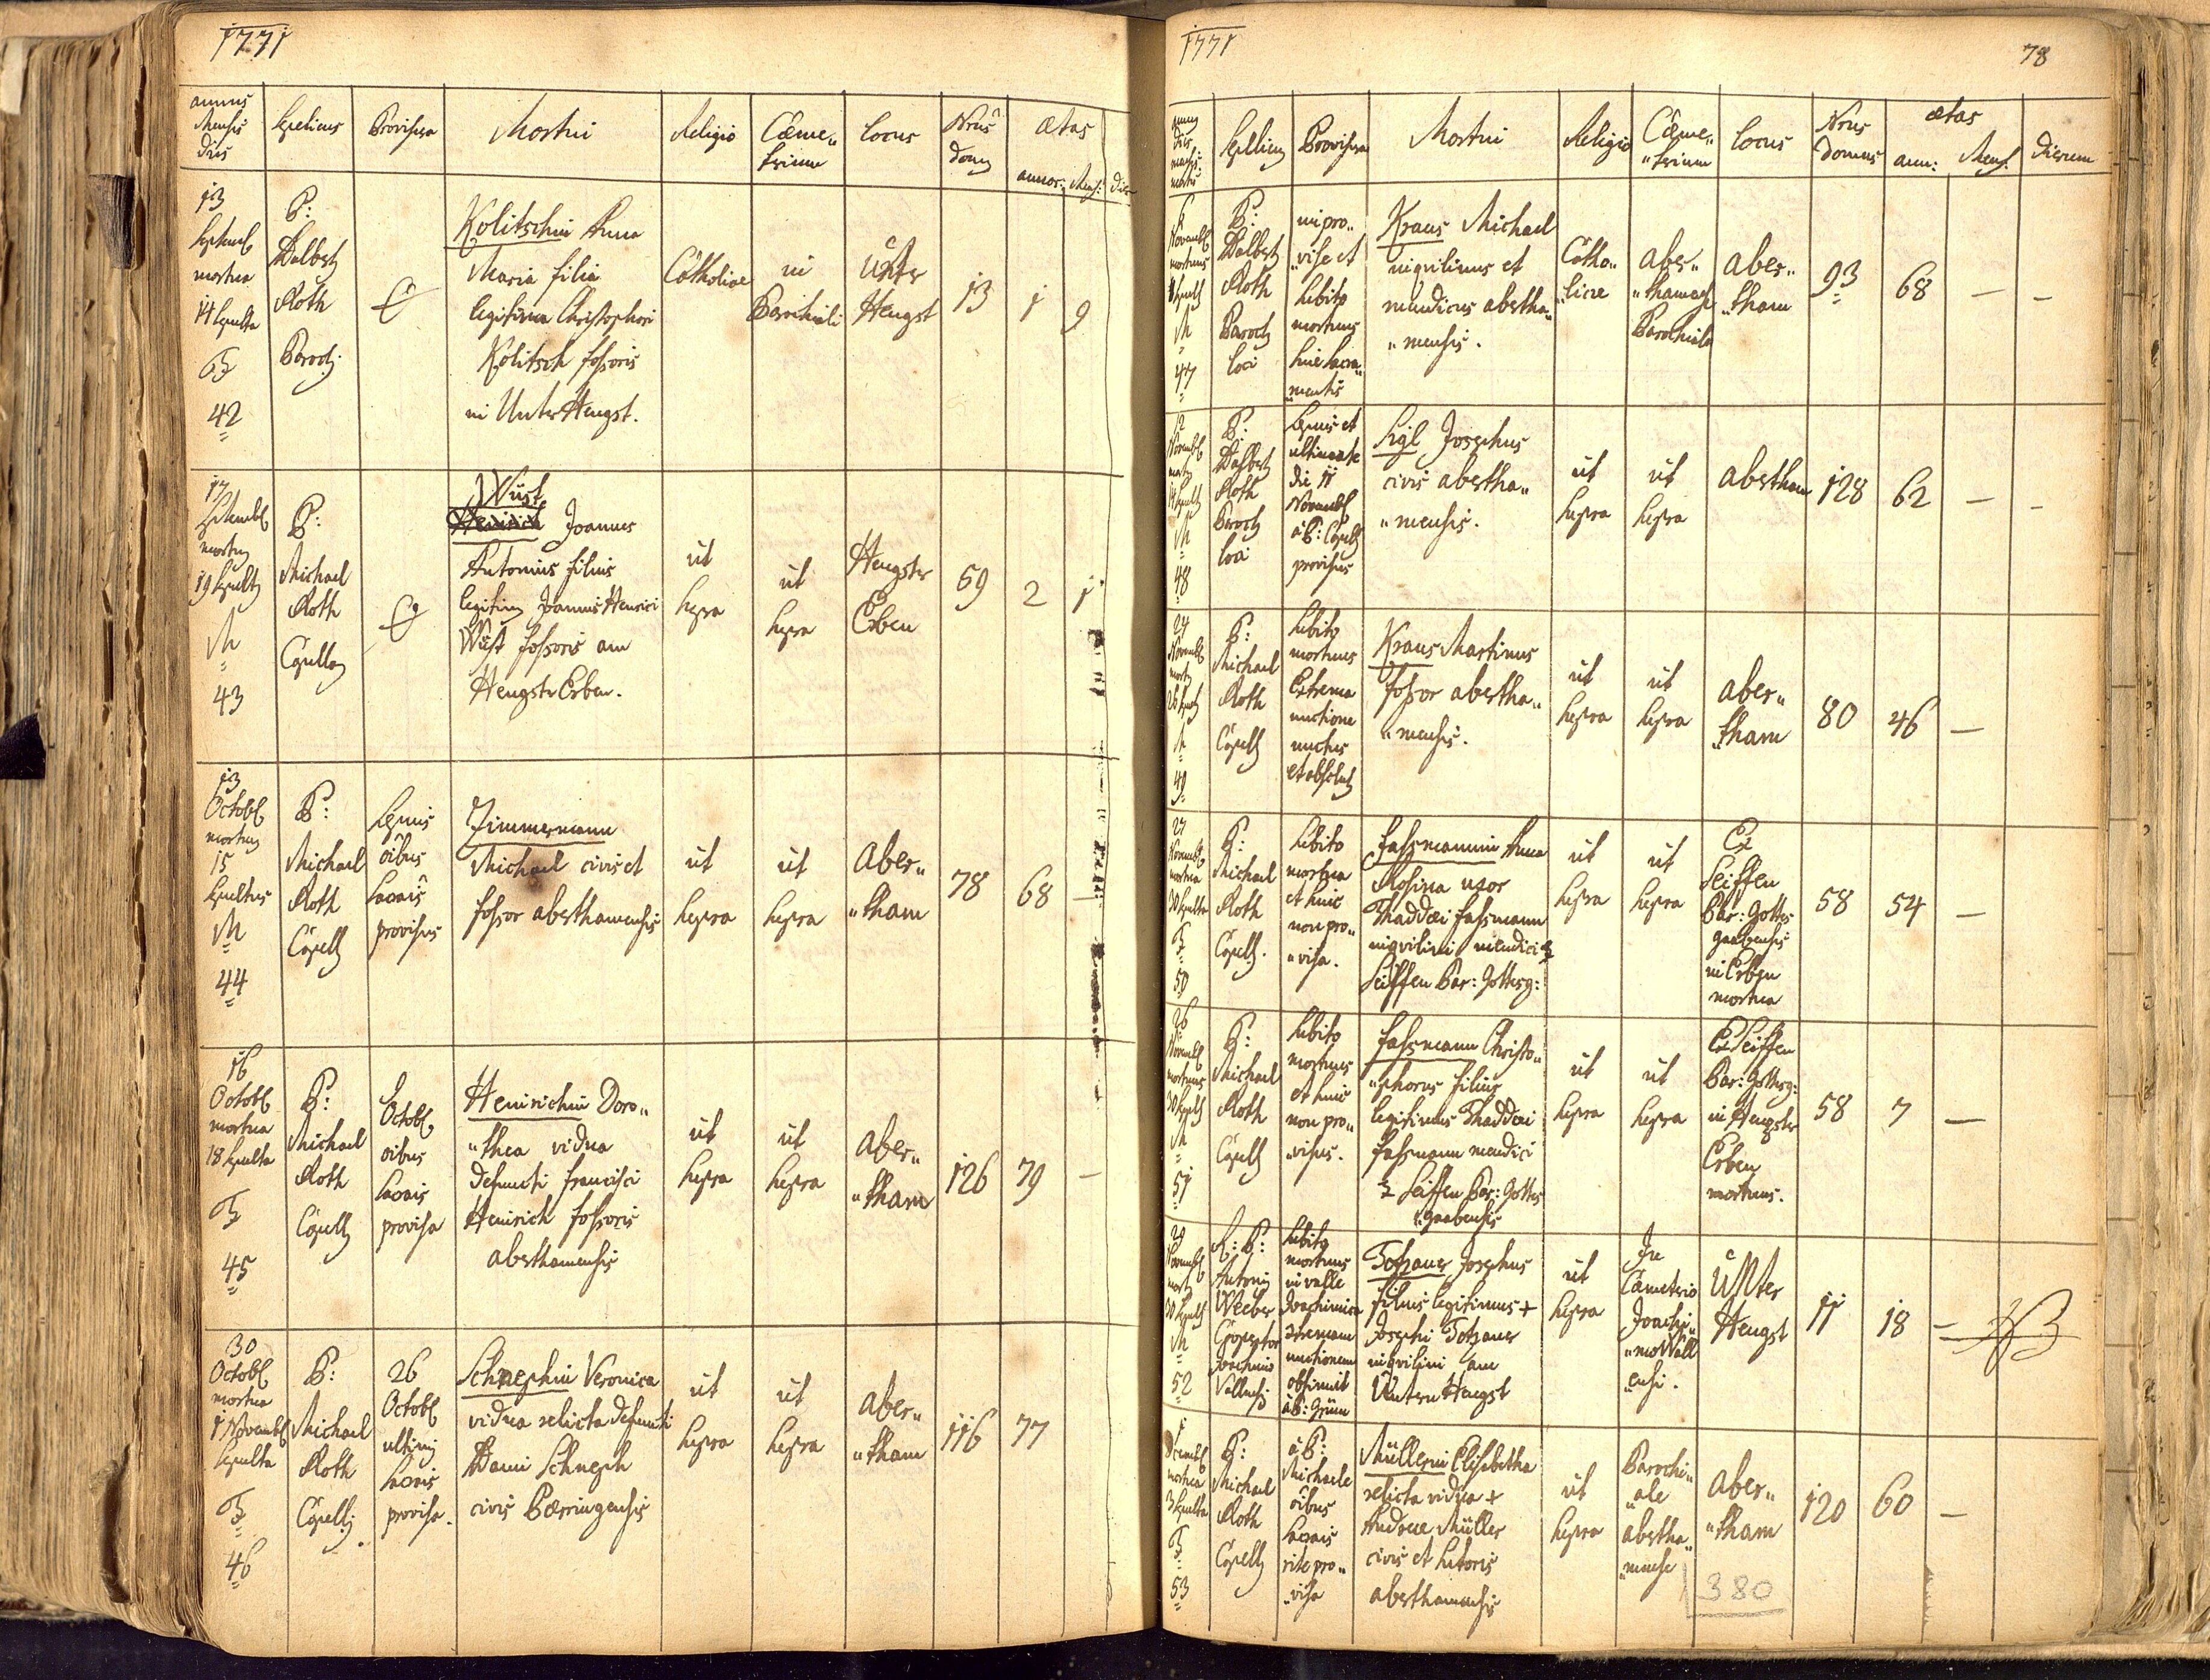 1771
annus
Mensis
dies
Sepeliens
Provisus
Mortui
Religio
Cæme„
„terium
Locus
Nrus
domus
ætas
annor:
Mens:
dier
13
Septemb
mortua
14 sepulta
42
P:
Adalbert
Roth
Paroch:
Kolitschin Anna
Maria filia
legitima Christophori
Kolitsch fossoris
in Unter Hengst.
Catholicæ
in
Parochiali
Unter
Hengst
13
1
9
17
Septemb
mortuus
19 sepultus
M
43
P:
Michael
Roth
Capellan
Wüst
Heinrich Joannes
Antonius filius
legitimus Joannis Henrici
Wüst fossoris am
Hengster Erben.
ut
supra
ut
supra
Hengster
Erben
59
2
1
13
Octob
mortuus
15
sepultus
M
44
P:
Michael
Roth
Capell
Sepius
oibus
sacris
provisus
Zimmermann
Michael civis et
fossor aberthamensis
ut
supra
ut
supra
Aber„
„tham
78
68
—
16
Octob
mortua
18 sepulta
45
P:
Michael
Roth
Capell
Octob
oibus
sacris
provisa
Heinrichin Doro„
„thea vidua
defuncti Francisci
Heinrich fossoris
aberthamensis
ut
supra
ut
supra
Aber„
„tham
126
79
—
30
Octob
mortua
1 Novemb
sepulta
46
P:
Michael
Roth
Capell:
26
Octob
ultimis
sacris
provisa.
Schnephin Veronica
vidua relicta defuncti
Adami Schneph
civis Bærringensis
ut
supra
ut
supra
Aber„
„tham
116
77
1771
78
Sepeliens
Provisus
Mortui
Religio
Cæme„
„terium
Locus
Nrus
domus
ætas
ann:
Mens:
dierum
Novemb
mortuus
M
47
P:
Adalbert
Roth
Paroch
loci
impro„
„vise et
subito
mortuus
sine sacra„
„mentis
Kraus Michael
inquilinus et
mendicus abertha„
„mensis.
Catho„
„licæ
Aber„
„thamens
Parochiale
Aber„
„tham
93
68
—
—
12
Novemb
M
48
P:
Adalbert
Roth
Paroch
loci
Sepius et
ultimate
die 11
Novemb
à P: Capell
provisus
Sigl Josephus
civis abertha„
„mensis.
ut
supra
ut
supra
Abertham
128
62
—
-
24
Novemb
49
P:
Michael
Roth
Capell
Subito
mortuus
Extrema
unctione
unctus
et absolut
Kraus Martinus
fossor abertha„
„mensis.
ut
supra
ut
supra
Aber„
„tham
80
46
—
27
Novemb
mortua
30 sepulta
50
P:
Michael
Roth
Capell.
Subito
mortua
et hinc
non pro„
„visa.
Fassmannin Anna
Rosina uxor
Thaddæi Fassmann
inquilini mendici ex
Seiffen Par: Gottesg:
ut
supra
ut
supra
Ex
Seiffen
Par: Gottes
gaabensis
in Erben
mortua
58
54
—
26
Novemb
mortuus
30 sepult
M
51
P:
Michael
Roth
Capell
Subito
mortuus
et hinc
non pro„
„visus.
Fassmann Christo„
„phorus filius
legitimus Thaddæi
Fassmann mendici
ex Seiffen Par: Gottes
„gaabensis
ut
supra
ut
supra
Ex Seiffen
Par: Gottesg:
in Hengster
Erben
mortuus.
58
7
—
29
Novemb
30 sepult
M
52
A: P:
Antonius
Weeber
Cooperator
Joachimo
Vallensis
Subito
mortuus
in valle
Joachimica
extremam
unctionem
obtinuit
à P: Grüm
Totzauer Josephus
filius legitimus +
Josephi Totzauer
inquilini am
Untern Hengst
ut
supra
In
Cæmeterio
Joachi„
„mo Vall
„ensi.
Unter
Hengst
11
18
—
Decemb
mortua
3 sepulta
53
P:
Michael
Roth
Capell
à P:
Michaele
oibus
sacris
rite pro„
„visa
Müllerin Elisabetha
relicta vidua +
Andreæ Müller
civis et sutoris
aberthamensis
ut
supra
Parochi„
„ale
abertha„
„mense
Aber„
„tham
120
60
—
380